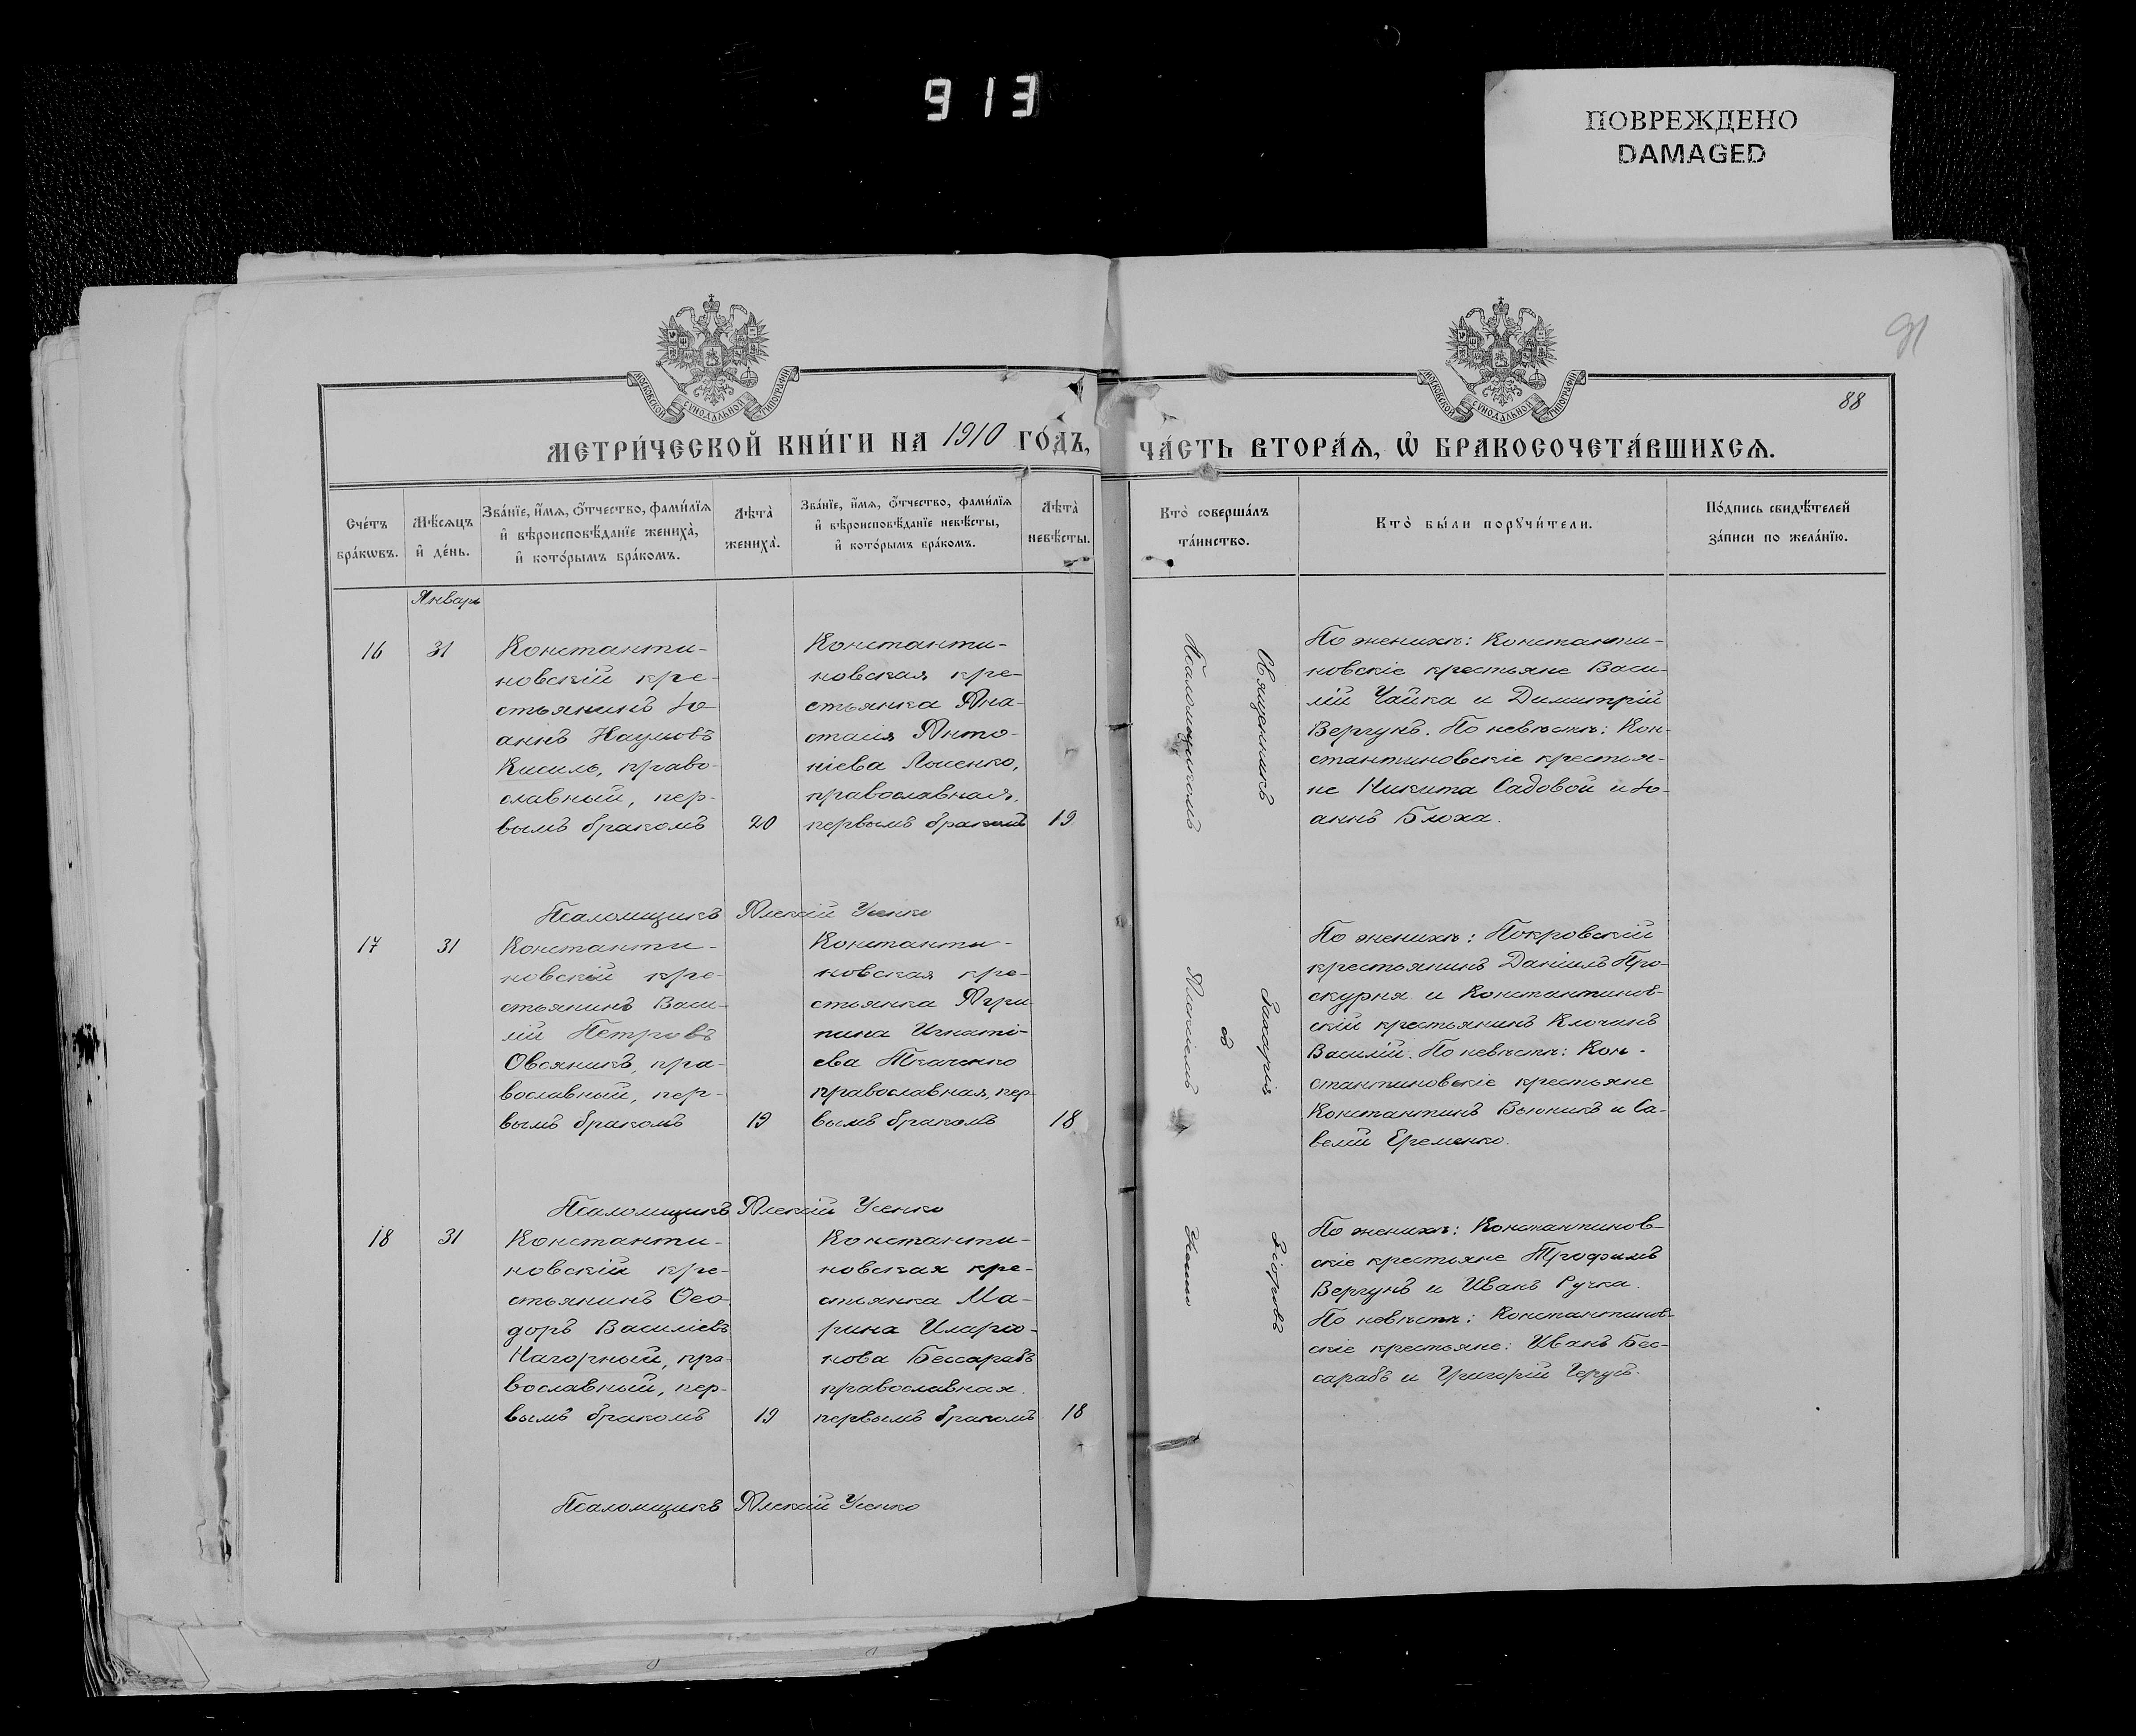 913
ПОВРЕЖДЕНО
DAMAGED
91
88
МОСКОВСКОЙ СѴНОДАЛЬНОЙ ТИПОГРАФІИ
МОСКОВСКОЙ СѴНОДАЛЬНОЙ ТИПОГРАФІИ
МЕТРИ́ЧЕСКОЙ КНИ́ГИ НА 1910 ГО́ДЪ,
ЧА́СТЬ ВТОРА́Ѧ, Ѽ БРАКОСОЧЕТА́ВШИХСѦ.
Сче́тъ
бра́кѡвъ.
Мѣ́сѧцъ
и҆ де́нь.
Зва́нїе, и҆́мѧ, ѻ҆́тчество, фами́лїѧ
и҆ вѣроисповѣ́данїе жениха̀,
и҆ кото́рымъ бра́комъ.
Лѣта̀
жениха̀.
Зва́нїе, и҆́мѧ, ѻ҆́тчество, фами́лїѧ
и҆ вѣроисповѣ́данїе невѣ́сты,
и҆ кото́рымъ бра́комъ.
Лѣта̀
невѣ́сты.
Кто̀ соверша́лъ
та́инство.
Кто̀ бы́ли порꙋчи́тели.
По́дпись свидѣ́телей
за́писи по жела́нїю.
Январь
16
31
Константи-
новскій кре-
стьянинъ Іо-
аннъ Наумовъ
Кисиль, право-
славный, пер-
вымъ бракомъ
20
Константи-
новская кре-
стьянка Ана-
стасія Анто-
ніева Лысенко,
православная,
первымъ бракомъ
19
По женихѣ: Константи-
новскіе крестьяне Васи-
лій Чайка и Димитрій
Вергунъ. По невѣстѣ: Кон-
стантиновскіе крестья-
не Никита Садовой и Іо-
аннъ Блоха.
Псаломщикъ Алексій Усенко
17
31
Константи-
новскій кре-
стьянинъ Васи-
лій Петровъ
Овсяникъ, пра-
вославный, пер-
вымъ бракомъ
19
Константи-
новская кре-
стьянка Агри-
пина Игнаті-
ева Ткаченко
православная, пер-
вымъ бракомъ
18
По женихѣ: Покровскій
крестьянинъ Даніилъ Про-
скурня и Константинов-
скій крестьянинъ Клочанъ
Василій. По невѣстѣ: Кон-
стантиновскіе крестьяне
Константинъ Вьюникъ и Са-
велій Еременко.
Псаломщикъ Алексій Усенко
18
31
Константи-
новскій кре-
стьянинъ Ѳео-
доръ Василіевъ
Нагорный, пра-
вославный, пер-
вымъ бракомъ
19
Константи-
новская кре-
стьянка Ма-
рина Иларіо-
нова Бессарабъ
православная.
первымъ бракомъ
18
По женихѣ: Константинов-
скіе крестьяне Трофимъ
Вергунъ и Иванъ Ручка.
По невѣстѣ: Константинов-
скіе крестьяне: Иванъ Бес-
сарабъ и Григорій
Псаломщикъ Алексій Усенко
Священникъ Захарія
съ
Псаломщикомъ Алексіемъ Усенко